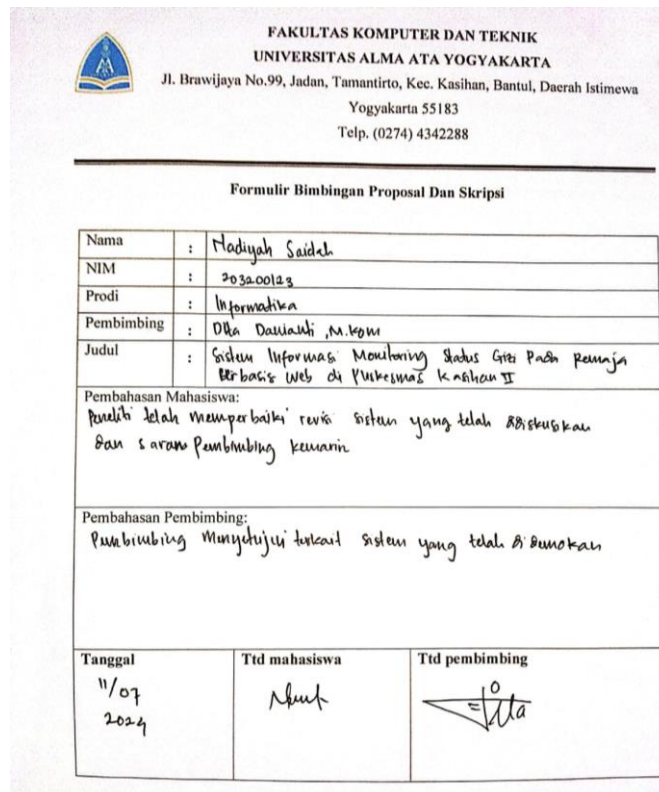 FAKULTAS KOMPUTER DAN TEKNIK
UNIVERSITAS ALMA ATA YOGYAKARTA
Jl. Brawijaya No.99, Jadan, Tamantirto, Kec. Kasihan, Bantul, Daerah Istimewa
Yogyakarta 55183
Telp. (0274) 4342288
Formulir Bimbingan Proposal Dan Skripsi
Nama : Nadiyah Saidah
NIM : 203200123
Prodi : Informatika
Pembimbing : Dita Danianti, M.Kom
Judul : Sistem Informasi Monitoring Status Gizi Pada Remaja
Berbasis Web di Puskesmas Kasihan II
Pembahasan Mahasiswa:
Peneliti telah memperbaiki revisi sistem yang telah didiskusikan
dan saran Pembimbing kemarin
Pembahasan Pembimbing:
Pembimbing Menyetujui terkait sistem yang telah di demokan
Tanggal Ttd mahasiswa Ttd pembimbing
11/07
2024